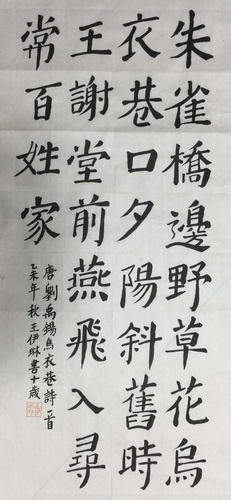 朱雀橋邊野草花烏
衣巷口夕陽斜舊時
王謝堂前燕飛入尋
常百姓家
唐劉禹錫烏衣巷詩一首
乙未年秋王伊琳書十歲